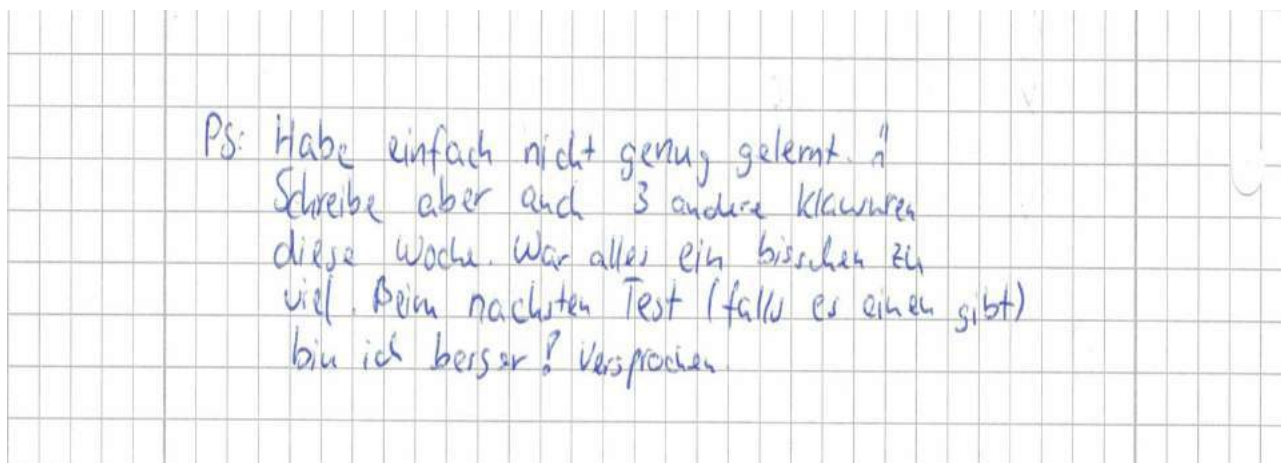 PS: Habe einfach nicht genug gelernt.
Schreibe aber auch 3 andere Klausuren
diese Woche. War alles ein bisschen zu
viel. Beim nächsten Test (falls es einen gibt)
bin ich besser! Versprochen